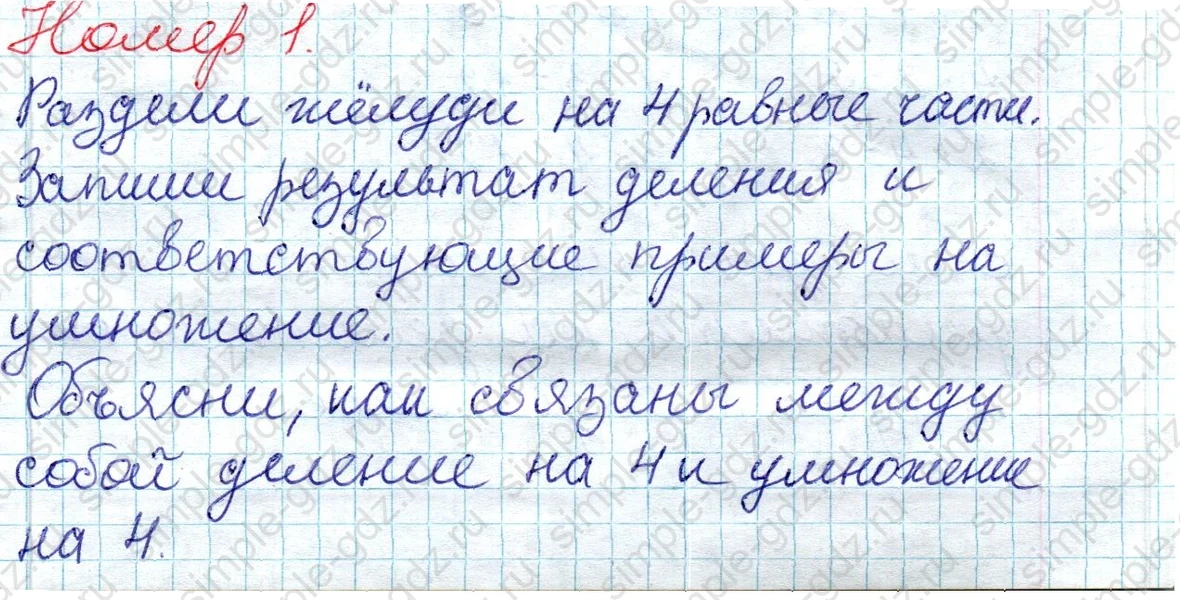 Номер 1.
Раздели жёлуди на 4 равные части.
Запиши результат деления и
соответствующие примеры на
умножение.
Объясни, как связаны между
собой деление на 4 и умножение
на 4.
simple-gdz.ru